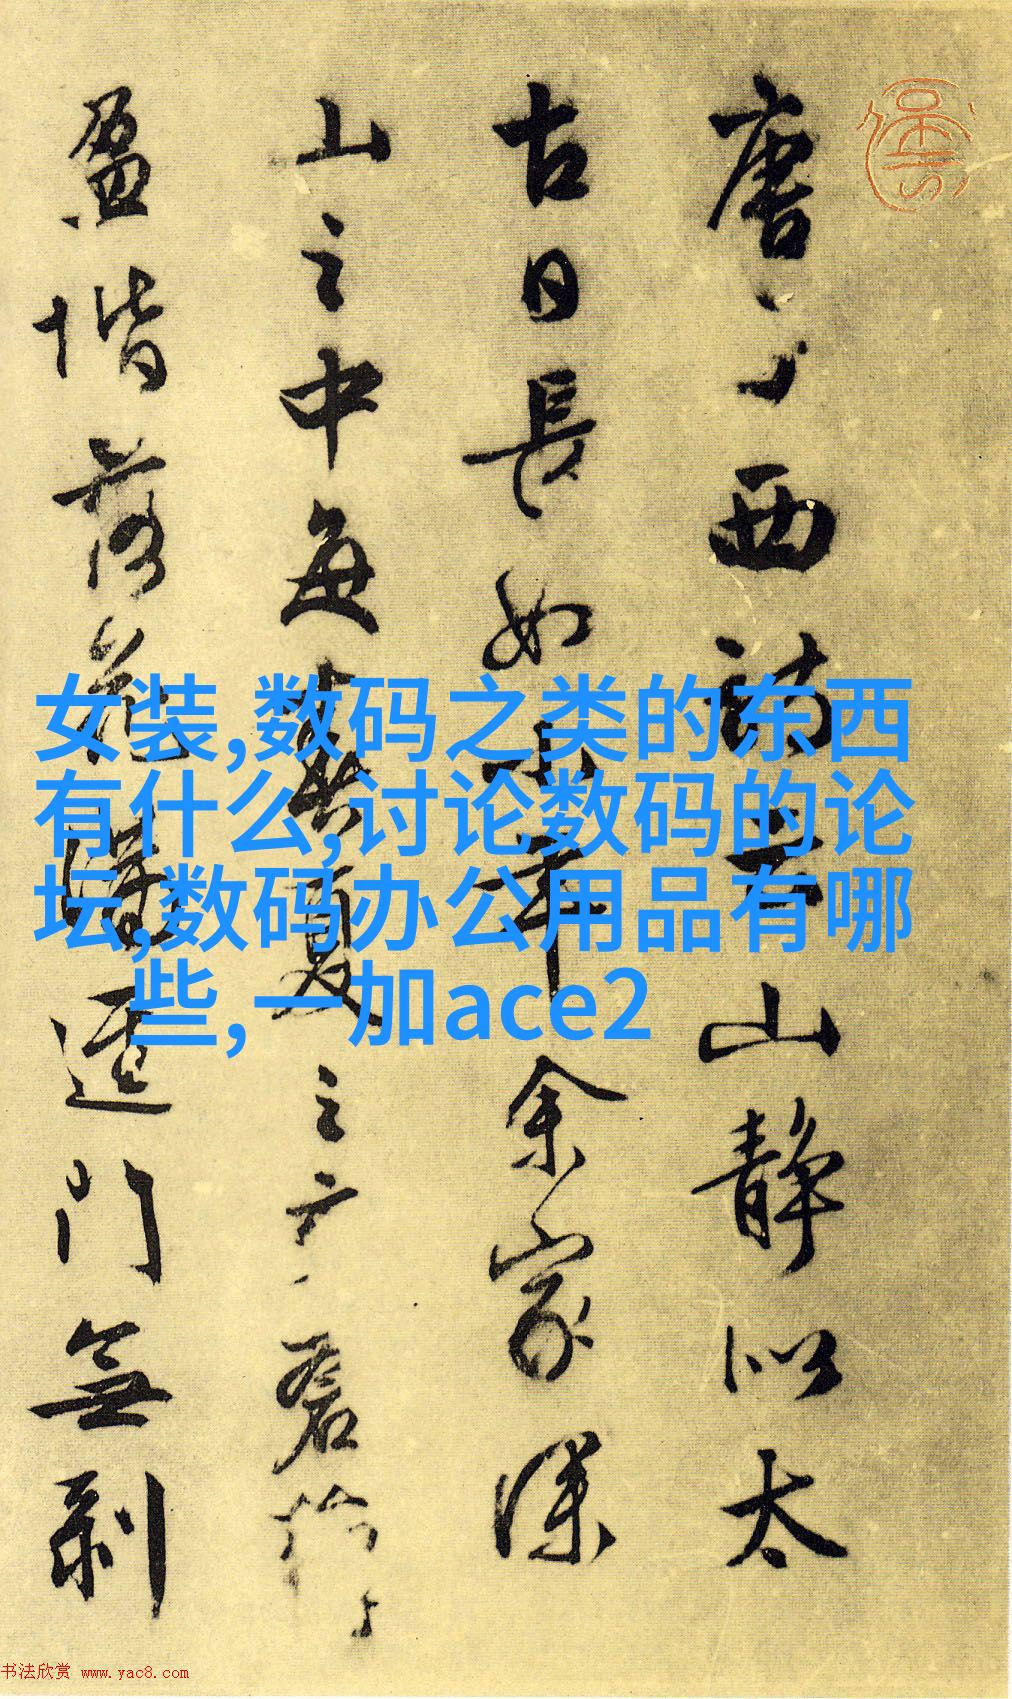 唐子西詩云山静似太
古日長如小年余家深
山之中每春夏之交蒼蘚
盈堦落花滿逕門無剥
女装,数码之类的东西
有什么,讨论数码的论
坛,数码办公用品有哪
些,一加ace2
书法欣赏 www.yac8.com